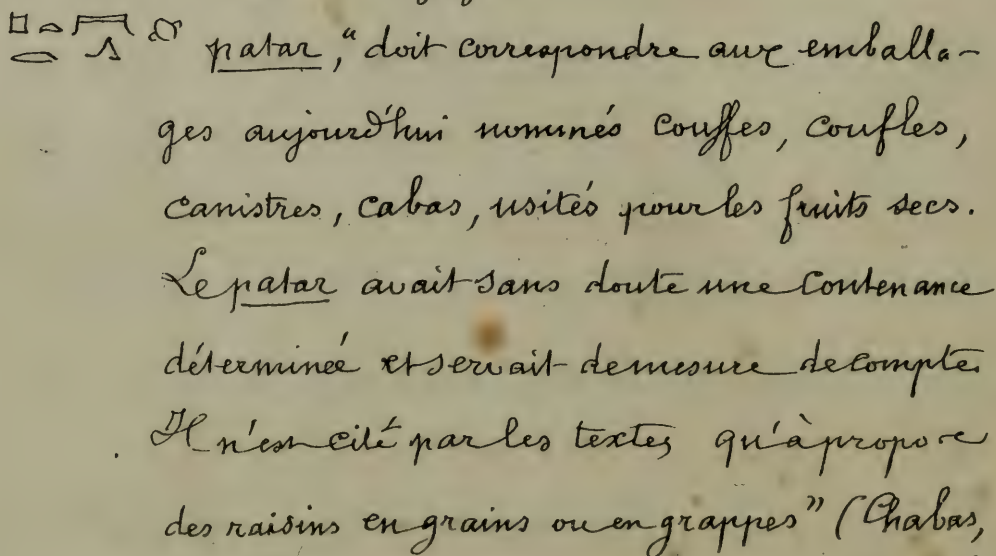 patar, "doit correspondre aux emballa-
ges aujourd'hui nommés couffes, coufles,
canistres, cabas, usités pour les fruits secs.
Le patar avait sans doute une contenance
déterminée et servait de mesure de compte.
Il n'est cité par les textes qu'à propos
des raisins en grains ou en grappes" (Chabas,